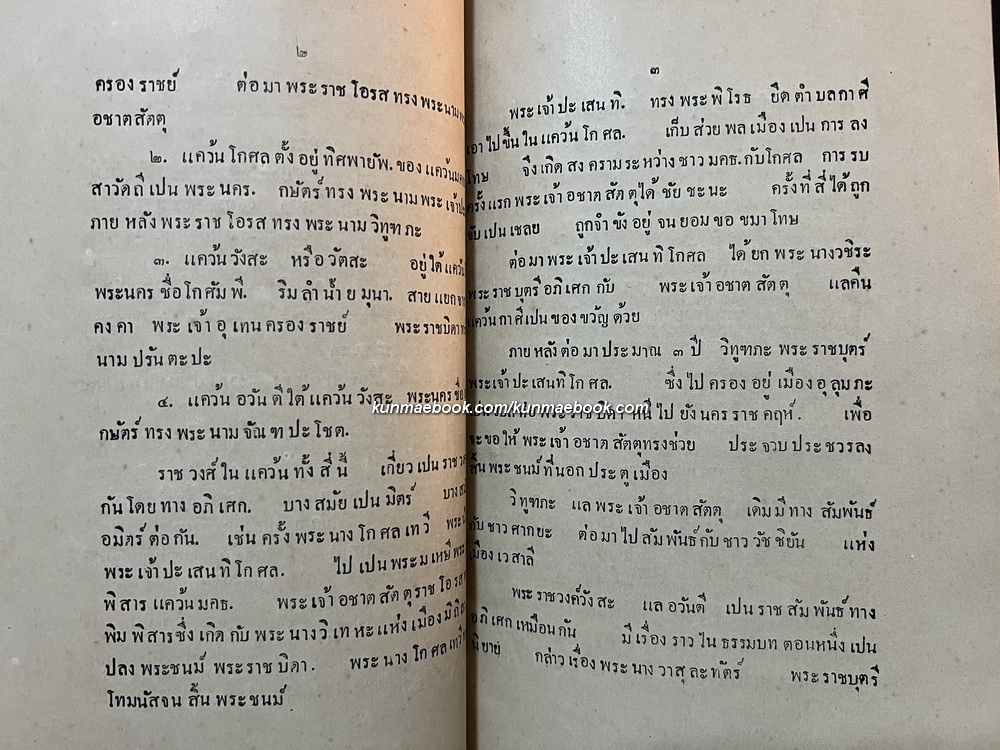 ๒
ครองราชย์ ต่อมาพระราชโอรสทรงพระนามพระ
อชาตสัตตุ
๒. แคว้นโกศล ตั้งอยู่ทิศพายัพ. ของแคว้นมค
สาวัดถีเปนพระนคร. กษัตร์ทรงพระนามพระเจ้าปะ
ภายหลังพระราชโอรสทรงพระนามวิทูฑภะ
๓. แคว้นวังสะ หรือวัตสะ อยู่ใต้แคว้น
พระนครชื่อโกศัมพี. ริมลำน้ำยมุนา. สายแยกจาก
คงคา พระเจ้าอุเทนครองราชย์ พระราชบิดาท
นามปรันตะปะ
๔. แคว้นอวันตีใต้แคว้นวังสะ พระนครชื่อ
กษัตร์ทรงพระนามจัณฑปะโชต.
ราชวงศ์ในแคว้นทั้งสี่นี้ เกี่ยวเปนราชวง
กันโดยทางอภิเศก. บางสมัยเปนมิตร์ บางส
อมิตร์ต่อกัน. เช่นครั้งพระนางโกศลเทวี พระน
พระเจ้าปะเสนทิโกศล. ไปเปนพระมเหษีพระ
พิสารแคว้นมคธ. พระเจ้าอชาตสัตตุราชโอรส
พิมพิสารซึ่งเกิดกับพระนางวิเทหะแห่งเมืองมิถิล
ปลงพระชนม์พระราชบิดา. พระนางโกศลเทวี
โทมนัสจนสิ้นพระชนม์
๓
พระเจ้าปะเสนทิ. ทรงพระพิโรธ ยึดตำบลกาศี
เอาไปขึ้นในแคว้นโกศล. เก็บส่วยพลเมืองเปนการลง
โทษ จึงเกิดสงครามระหว่างชาวมคธ.กับโกศล การรบ
ครั้งแรกพระเจ้าอชาตสัตตุได้ชัยชะนะ ครั้งที่สี่ได้ถูก
จับเปนเชลย ถูกจำขังอยู่จนยอมขอขมาโทษ
ต่อมาพระเจ้าปะเสนทิโกศล ได้ยกพระนางวชิระ
พระราชบุตรีอภิเศกกับ พระเจ้าอชาตสัตตุ แลคืน
แคว้นกาศีเปนของขวัญด้วย
ภายหลังต่อมาประมาณ ๓ ปี วิทูฑภะพระราชบุตร์
พระเจ้าปะเสนทิโกศล. ซึ่งไปครองอยู่เมืองอุลุมภะ
พระราชบิดา หนีไปยังนครราชคฤห์. เพื่อ
จะขอให้พระเจ้าอชาตสัตตุทรงช่วย ประจวบประชวรลง
สิ้นพระชนม์ที่นอกประตูเมือง
วิทูฑภะ แลพระเจ้าอชาตสัตตุ เดิมมีทางสัมพันธ์
กับชาวศากยะ ต่อมาไปสัมพันธ์กับชาววัชชิยัน แห่ง
เมืองเวสาลี
พระราชวงค์วังสะ แลอวันตี เปนราชสัมพันธ์ทาง
อภิเศกเหมือนกัน มีเรื่องราวในธรรมบทตอนหนึ่งเปน
นิยาย กล่าวเรื่องพระนางวาสุละทัตร์ พระราชบุตรี
kunmaebook.com/kunmaebook.com